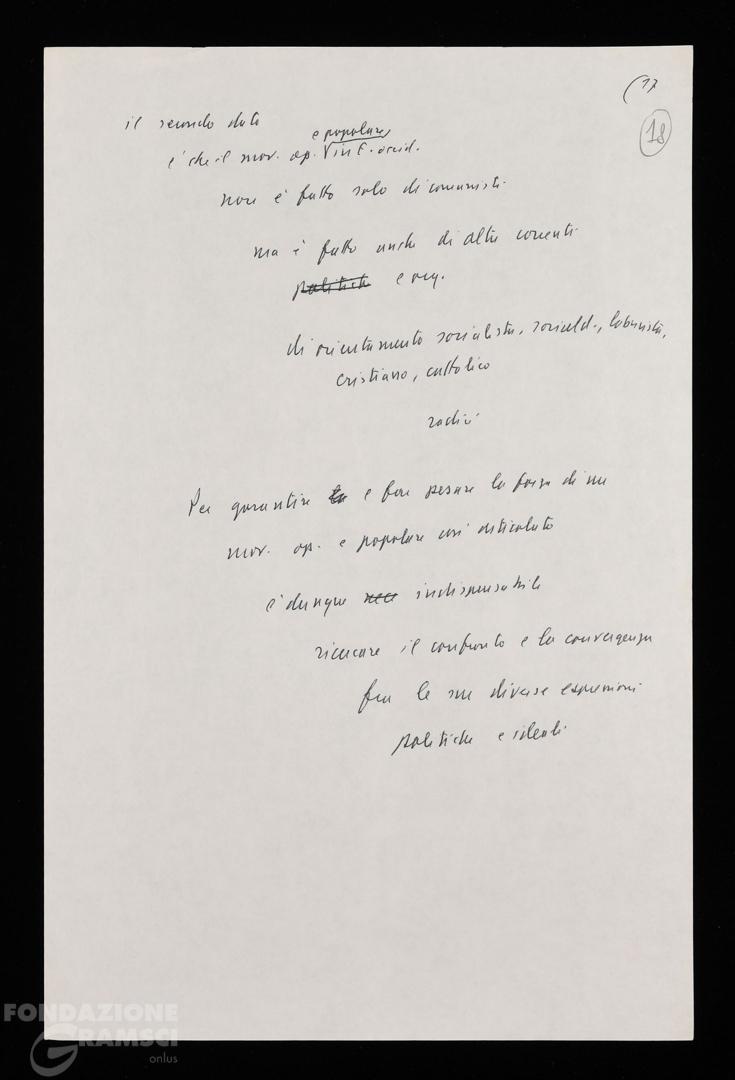 (17
18
il secondo dato
e popolare
è che il mov. op. V in E. occid.
non è fatto solo di comunisti
ma è fatto anche di altre correnti
politiche e org.
di orientamento socialista, sociald., laburista,
cristiano, cattolico
radic
Per garantire la e far pesare la forza di un
mov. op. e popolare così articolato
è dunque nece indispensabile
ricercare il confronto e la convergenza
fra le sue diverse espressioni
politiche e ideali
FONDAZIONE
GRAMSCI
onlus